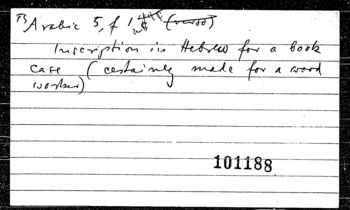 TS Arabic 5, f 1
Inscription in Hebrew for a book
case (certainly made for a wood
worker)
101188